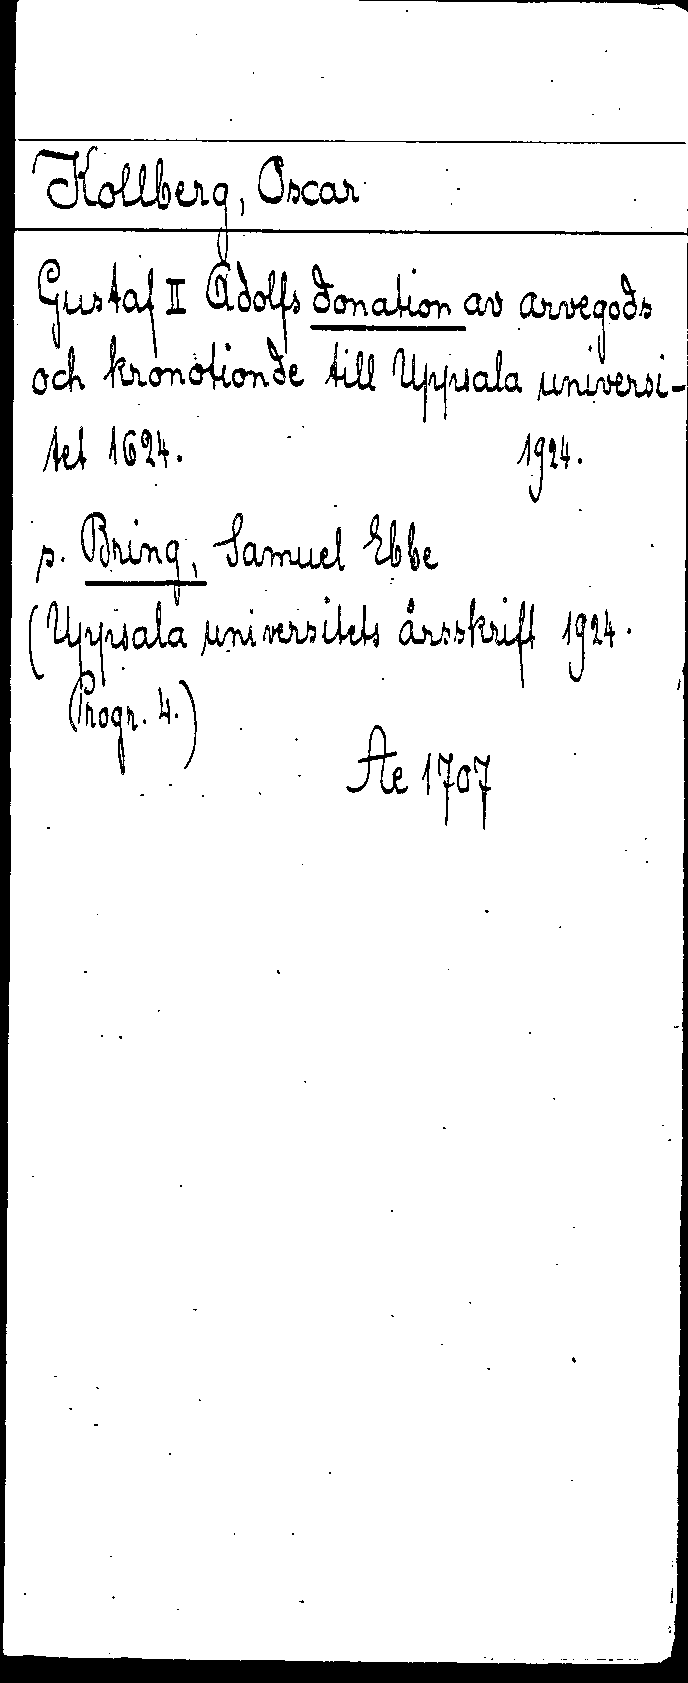 Kollberg, Oscar
Gustaf II Adolfs donation av arvegods
och kronotionde till Uppsala universi-
tet 1624. 1924.
s. Bring, Samuel Ebbe
(Uppsala universitets årsskrift 1924.
(Progr. 4.)
Ae 1707